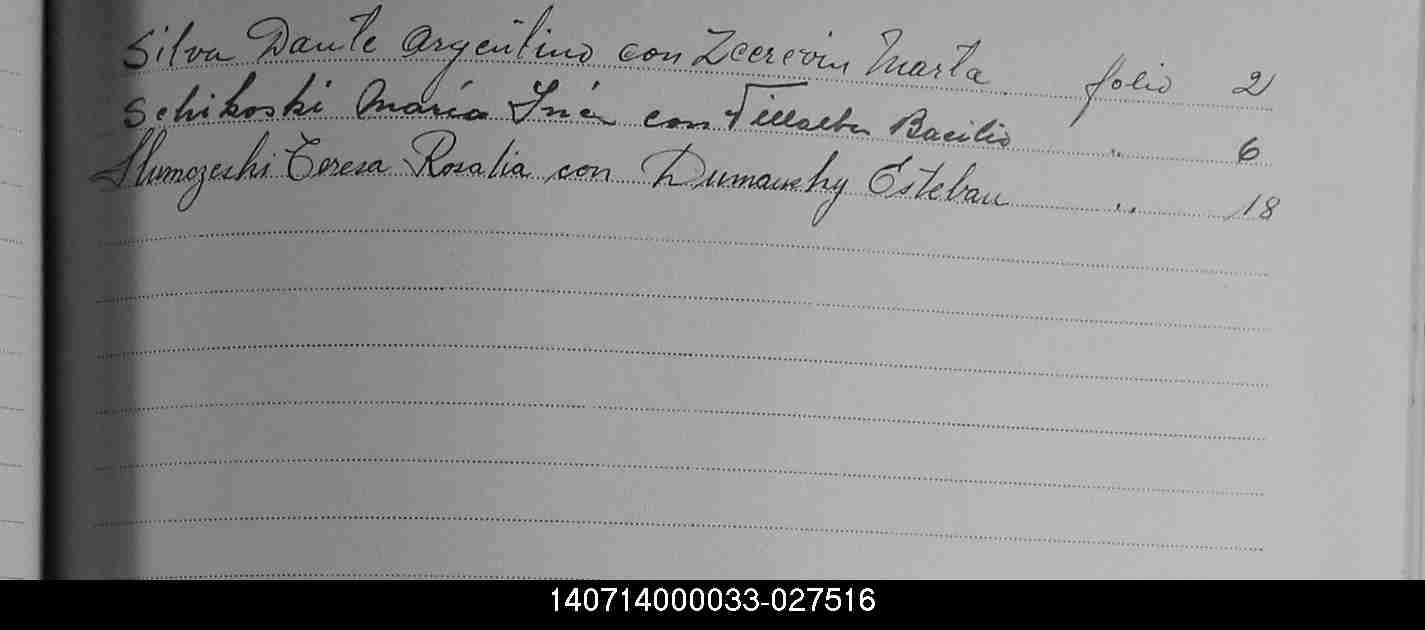 Silva Dante Argentino con Marta folio 2
Schikoski María Inés con Bacilio " 6
Teresa Rosalia con Esteban " 18
140714000033-027516